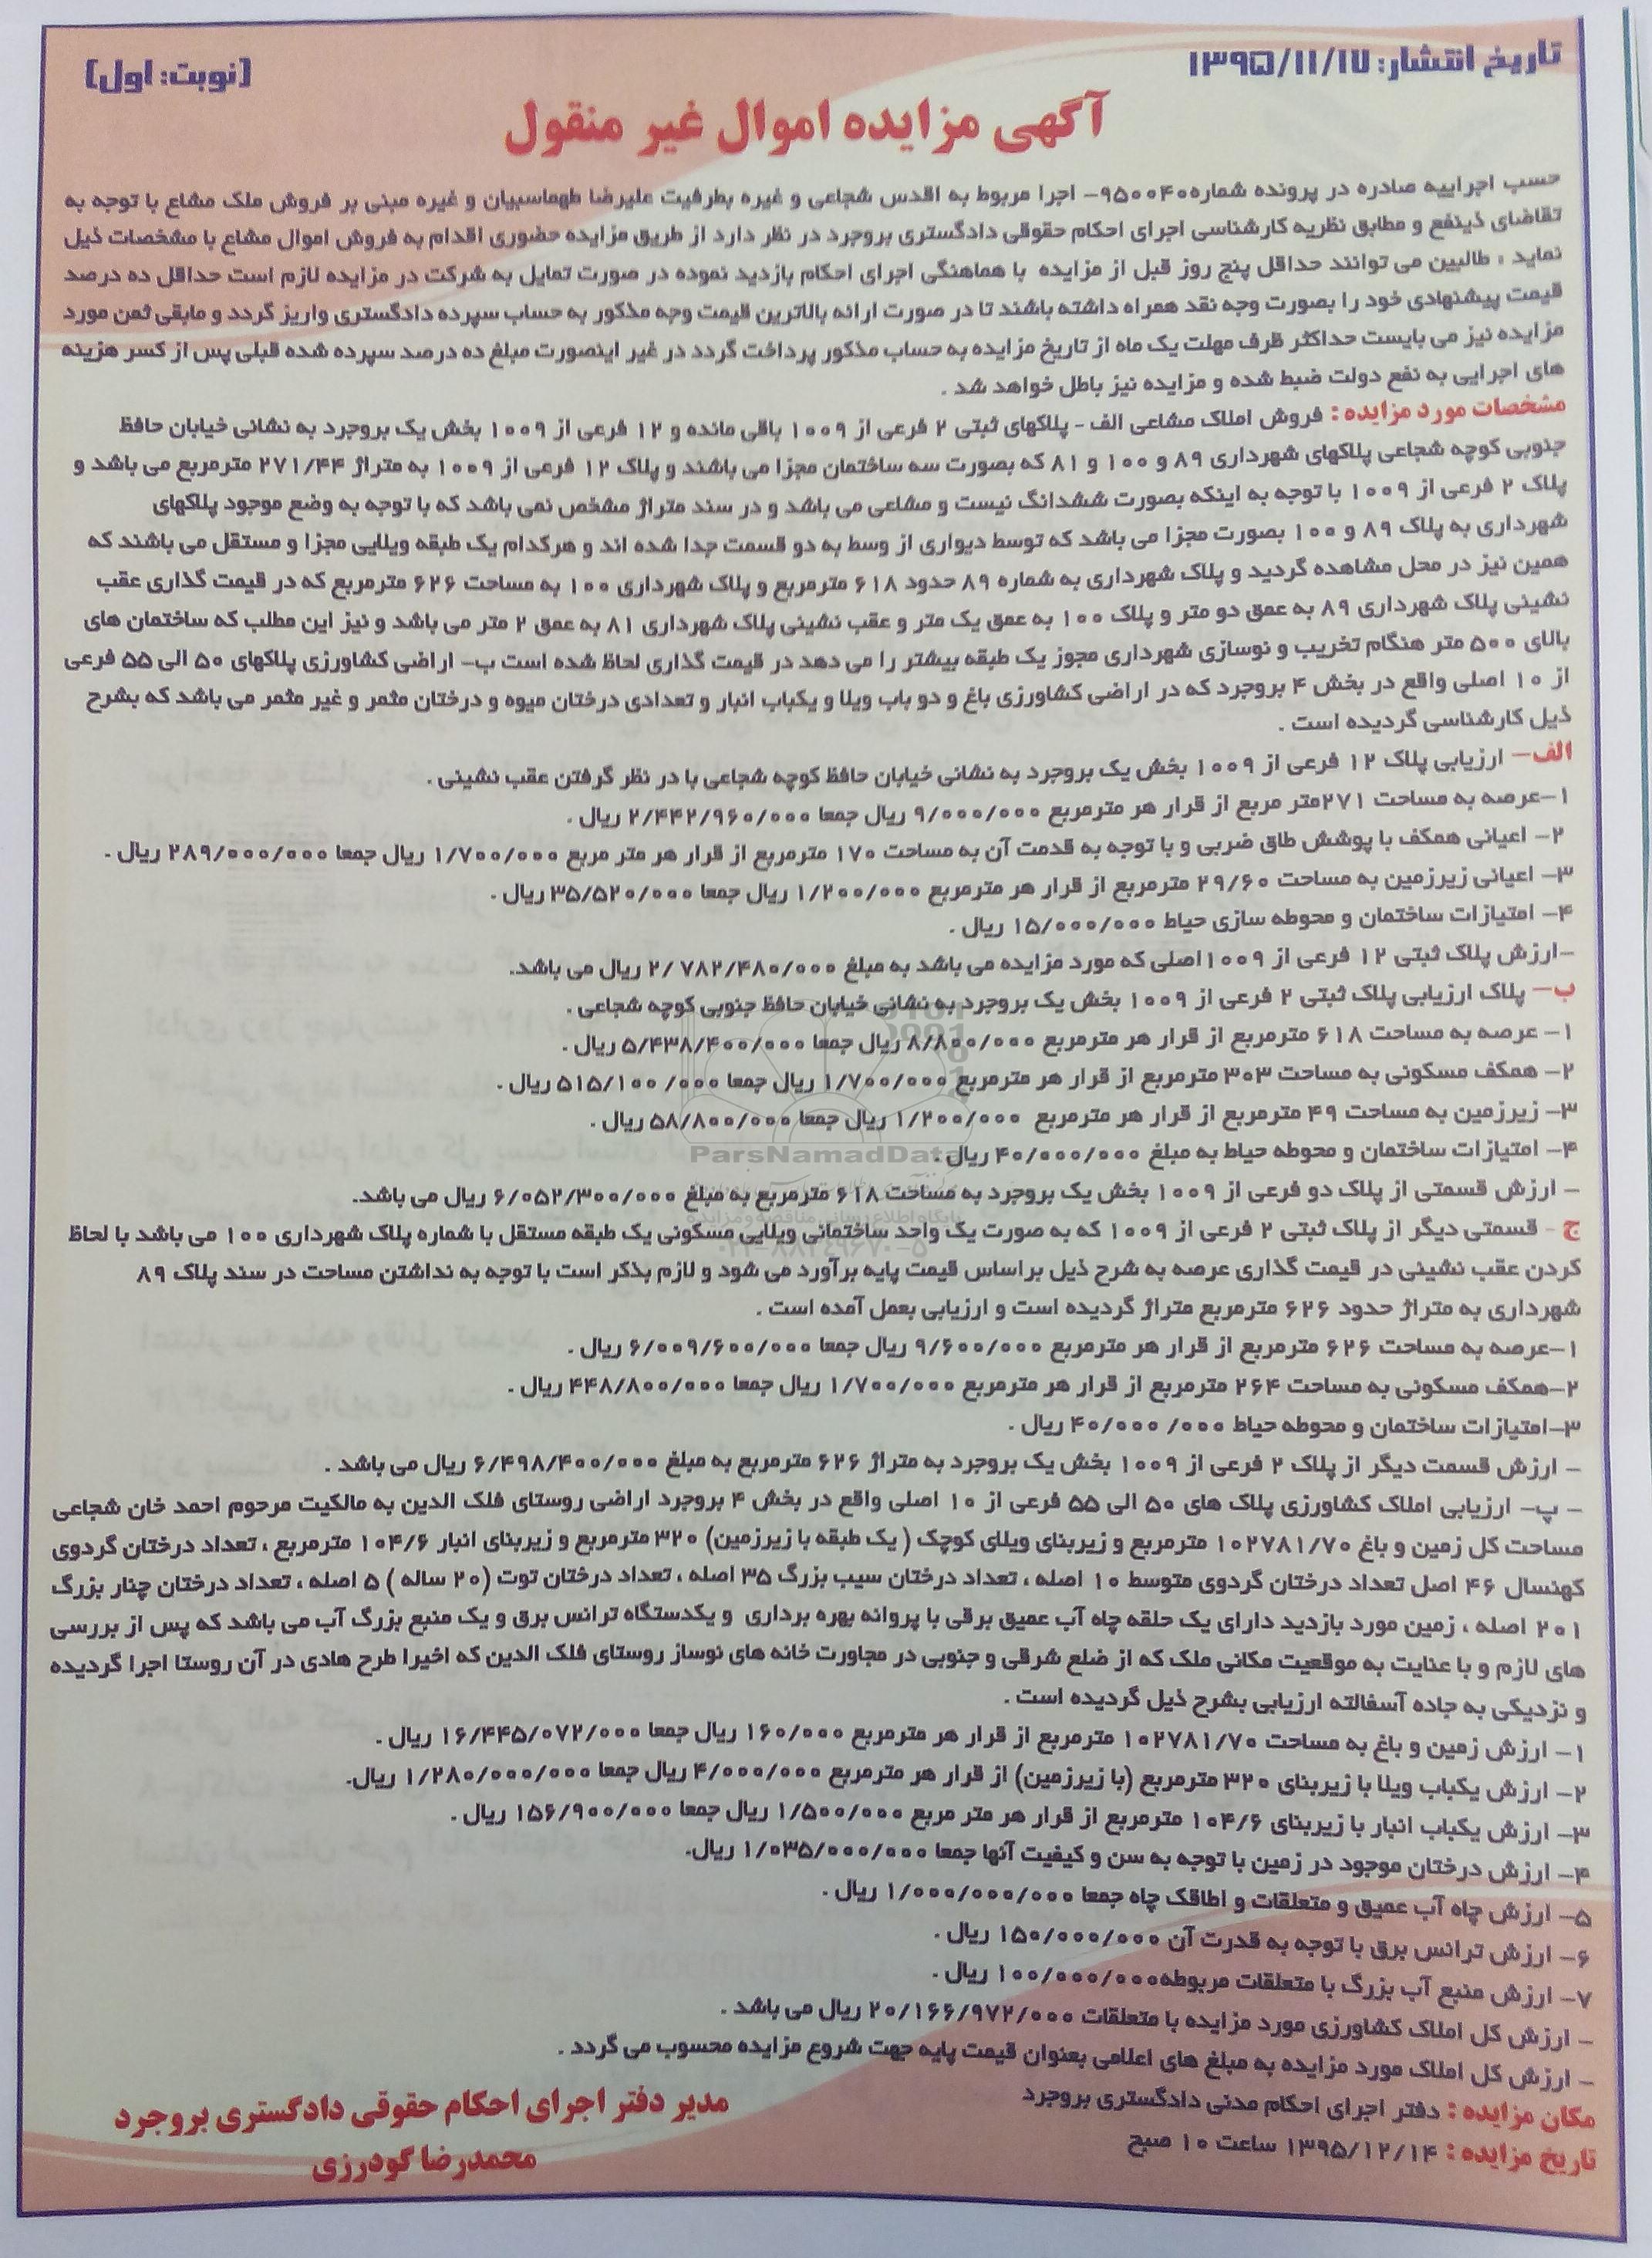 تاریخ انتشار: ۱۳۹۵/۱۱/۱۷
(نوبت: اول)
آگهی مزایده اموال غیر منقول
حسب اجراییه صادره در پرونده شماره۹۵۰۰۴۰- اجرا مربوط به اقدس شجاعی و غیره بطرفیت علیرضا طهماسبیان و غیره مبنی بر فروش ملک مشاع با توجه به
تقاضای ذینفع و مطابق نظریه کارشناسی اجرای احکام حقوقی دادگستری بروجرد در نظر دارد از طریق مزایده حضوری اقدام به فروش اموال مشاع با مشخصات ذیل
نماید ، طالبین می توانند حداقل پنج روز قبل از مزایده با هماهنگی اجرای احکام بازدید نموده در صورت تمایل به شرکت در مزایده لازم است حداقل ده درصد
قیمت پیشنهادی خود را بصورت وجه نقد همراه داشته باشند تا در صورت ارائه بالاترین قیمت وجه مذکور به حساب سپرده دادگستری واریز گردد و مابقی ثمن مورد
مزایده نیز می بایست حداکثر ظرف مهلت یک ماه از تاریخ مزایده به حساب مذکور پرداخت گردد در غیر اینصورت مبلغ ده درصد سپرده شده قبلی پس از کسر هزینه
های اجرایی به نفع دولت ضبط شده و مزایده نیز باطل خواهد شد .
مشخصات مورد مزایده : فروش املاک مشاعی الف - پلاکهای ثبتی ۲ فرعی از ۱۰۰۹ باقی مانده و ۱۲ فرعی از ۱۰۰۹ بخش یک بروجرد به نشانی خیابان حافظ
جنوبی کوچه شجاعی پلاکهای شهرداری ۸۹ و ۱۰۰ و ۸۱ که بصورت سه ساختمان مجزا می باشند و پلاک ۱۲ فرعی از ۱۰۰۹ به متراژ ۲۷۱/۴۴ مترمربع می باشد و
پلاک ۲ فرعی از ۱۰۰۹ با توجه به اینکه بصورت ششدانگ نیست و مشاعی می باشد و در سند متراژ مشخص نمی باشد که با توجه به وضع موجود پلاکهای
شهرداری به پلاک ۸۹ و ۱۰۰ بصورت مجزا می باشد که توسط دیواری از وسط به دو قسمت جدا شده اند و هرکدام یک طبقه ویلایی مجزا و مستقل می باشند که
همین نیز در محل مشاهده گردید و پلاک شهرداری به شماره ۸۹ حدود ۶۱۸ مترمربع و پلاک شهرداری ۱۰۰ به مساحت ۶۲۶ مترمربع که در قیمت گذاری عقب
نشینی پلاک شهرداری ۸۹ به عمق دو متر و پلاک ۱۰۰ به عمق یک متر و عقب نشینی پلاک شهرداری ۸۱ به عمق ۲ متر می باشد و نیز این مطلب که ساختمان های
بالای ۵۰۰ متر هنگام تخریب و نوسازی شهرداری مجوز یک طبقه بیشتر را می دهد در قیمت گذاری لحاظ شده است ب- اراضی کشاورزی پلاکهای ۵۰ الی ۵۵ فرعی
از ۱۰ اصلی واقع در بخش ۴ بروجرد که در اراضی کشاورزی باغ و دو باب ویلا و یکباب انبار و تعدادی درختان میوه و درختان مثمر و غیر مثمر می باشد که بشرح
ذیل کارشناسی گردیده است .
الف– ارزیابی پلاک ۱۲ فرعی از ۱۰۰۹ بخش یک بروجرد به نشانی خیابان حافظ کوچه شجاعی با در نظر گرفتن عقب نشینی .
۱-عرصه به مساحت ۲۷۱متر مربع از قرار هر مترمربع ۹/۰۰۰/۰۰۰ ریال جمعا ۲/۴۴۲/۹۶۰/۰۰۰ ریال .
۲- اعیانی همکف با پوشش طاق ضربی و با توجه به قدمت آن به مساحت ۱۷۰ مترمربع از قرار هر متر مربع ۱/۷۰۰/۰۰۰ ریال جمعا ۲۸۹/۰۰۰/۰۰۰ ریال .
۳- اعیانی زیرزمین به مساحت ۲۹/۶۰ مترمربع از قرار هر مترمربع ۱/۲۰۰/۰۰۰ ریال جمعا ۳۵/۵۲۰/۰۰۰ ریال .
۴- امتیازات ساختمان و محوطه سازی حیاط ۱۵/۰۰۰/۰۰۰ ریال .
-ارزش پلاک ثبتی ۱۲ فرعی از ۱۰۰۹اصلی که مورد مزایده می باشد به مبلغ ۲/ ۷۸۲/۴۸۰/۰۰۰ ریال می باشد.
ب– پلاک ارزیابی پلاک ثبتی ۲ فرعی از ۱۰۰۹ بخش یک بروجرد به نشانی خیابان حافظ جنوبی کوچه شجاعی .
۱- عرصه به مساحت ۶۱۸ مترمربع از قرار هر مترمربع ۸/۸۰۰/۰۰۰ ریال جمعا ۵/۴۳۸/۴۰۰/۰۰۰ ریال .
۲- همکف مسکونی به مساحت ۳۰۳ مترمربع از قرار هر مترمربع ۱/۷۰۰/۰۰۰ ریال جمعا ۵۱۵/۱۰۰/۰۰۰ ریال .
۳- زیرزمین به مساحت ۴۹ مترمربع از قرار هر مترمربع ۱/۲۰۰/۰۰۰ ریال جمعا ۵۸/۸۰۰/۰۰۰ ریال .
۴- امتیازات ساختمان و محوطه حیاط به مبلغ ۴۰/۰۰۰/۰۰۰ ریال .
ParsNamadData
- ارزش قسمتی از پلاک دو فرعی از ۱۰۰۹ بخش یک بروجرد به مساحت ۶۱۸ مترمربع به مبلغ ۶/۰۵۲/۳۰۰/۰۰۰ ریال می باشد.
پایگاه اطلاع رسانی مناقصه و مزایده
ج - قسمتی دیگر از پلاک ثبتی ۲ فرعی از ۱۰۰۹ که به صورت یک واحد ساختمانی ویلایی مسکونی یک طبقه مستقل با شماره پلاک شهرداری ۱۰۰ می باشد با لحاظ
۰۲۱-۸۸۳۴۹۶۷۰-۵
کردن عقب نشینی در قیمت گذاری عرصه به شرح ذیل براساس قیمت پایه برآورد می شود و لازم بذکر است با توجه به نداشتن مساحت در سند پلاک ۸۹
شهرداری به متراژ حدود ۶۲۶ مترمربع متراژ گردیده است و ارزیابی بعمل آمده است .
۱-عرصه به مساحت ۶۲۶ مترمربع از قرار هر مترمربع ۹/۶۰۰/۰۰۰ ریال جمعا ۶/۰۰۹/۶۰۰/۰۰۰ ریال .
۲-همکف مسکونی به مساحت ۲۶۴ مترمربع از قرار هر مترمربع ۱/۷۰۰/۰۰۰ ریال جمعا ۴۴۸/۸۰۰/۰۰۰ ریال .
۳-امتیازات ساختمان و محوطه حیاط ۴۰/۰۰۰/۰۰۰ ریال .
- ارزش قسمت دیگر از پلاک ۲ فرعی از ۱۰۰۹ بخش یک بروجرد به متراژ ۶۲۶ مترمربع به مبلغ ۶/۴۹۸/۴۰۰/۰۰۰ ریال می باشد .
- پ- ارزیابی املاک کشاورزی پلاک های ۵۰ الی ۵۵ فرعی از ۱۰ اصلی واقع در بخش ۴ بروجرد اراضی روستای فلک الدین به مالکیت مرحوم احمد خان شجاعی
مساحت کل زمین و باغ ۱۰۲۷۸۱/۷۰ مترمربع و زیربنای ویلای کوچک ( یک طبقه با زیرزمین) ۳۲۰ مترمربع و زیربنای انبار ۱۰۴/۶ مترمربع ، تعداد درختان گردوی
کهنسال ۴۶ اصل تعداد درختان گردوی متوسط ۱۰ اصله ، تعداد درختان سیب بزرگ ۳۵ اصله ، تعداد درختان توت (۲۰ ساله ) ۵ اصله ، تعداد درختان چنار بزرگ
۲۰۱ اصله ، زمین مورد بازدید دارای یک حلقه چاه آب عمیق برقی با پروانه بهره برداری و یکدستگاه ترانس برق و یک منبع بزرگ آب می باشد که پس از بررسی
های لازم و با عنایت به موقعیت مکانی ملک که از ضلع شرقی و جنوبی در مجاورت خانه های نوساز روستای فلک الدین که اخیرا طرح هادی در آن روستا اجرا گردیده
و نزدیکی به جاده آسفالته ارزیابی بشرح ذیل گردیده است .
۱- ارزش زمین و باغ به مساحت ۱۰۲۷۸۱/۷۰ مترمربع از قرار هر مترمربع ۱۶۰/۰۰۰ ریال جمعا ۱۶/۴۴۵/۰۷۲/۰۰۰ ریال .
۲- ارزش یکباب ویلا با زیربنای ۳۲۰ مترمربع (با زیرزمین) از قرار هر مترمربع ۴/۰۰۰/۰۰۰ ریال جمعا ۱/۲۸۰/۰۰۰/۰۰۰ ریال.
۳- ارزش یکباب انبار با زیربنای ۱۰۴/۶ مترمربع از قرار هر متر مربع ۱/۵۰۰/۰۰۰ ریال جمعا ۱۵۶/۹۰۰/۰۰۰ ریال .
۴- ارزش درختان موجود در زمین با توجه به سن و کیفیت آنها جمعا ۱/۰۳۵/۰۰۰/۰۰۰ ریال.
۵- ارزش چاه آب عمیق و متعلقات و اطاقک چاه جمعا ۱/۰۰۰/۰۰۰/۰۰۰ ریال .
۶- ارزش ترانس برق با توجه به قدرت آن ۱۵۰/۰۰۰/۰۰۰ ریال .
۷- ارزش منبع آب بزرگ با متعلقات مربوطه۱۰۰/۰۰۰/۰۰۰ ریال .
- ارزش کل املاک کشاورزی مورد مزایده با متعلقات ۲۰/۱۶۶/۹۷۲/۰۰۰ ریال می باشد .
- ارزش کل املاک مورد مزایده به مبلغ های اعلامی بعنوان قیمت پایه جهت شروع مزایده محسوب می گردد .
مکان مزایده : دفتر اجرای احکام مدنی دادگستری بروجرد
تاریخ مزایده : ۱۳۹۵/۱۲/۱۴ ساعت ۱۰ صبح
مدیر دفتر اجرای احکام حقوقی دادگستری بروجرد
محمدرضا گودرزی